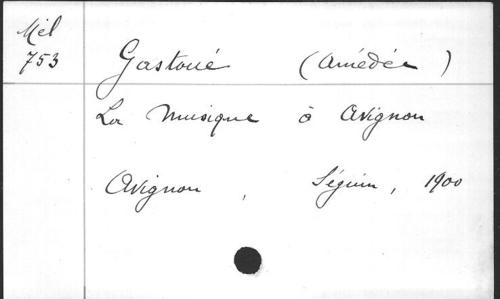 Mél
753
Gastoué (Amédée)
La Musique à Avignon
Avignon, Séguin, 1900